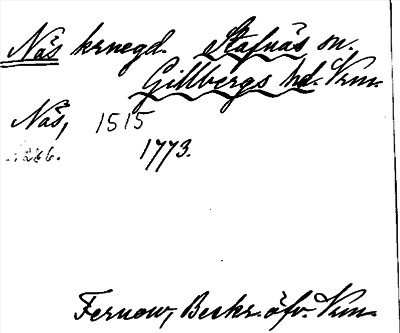 Näs krnegd. Stafnäs sn.
Gillbergs hd. Vrm.
Näs, 1515
1773.
Fernow, Beskr. öfv. Vrm.